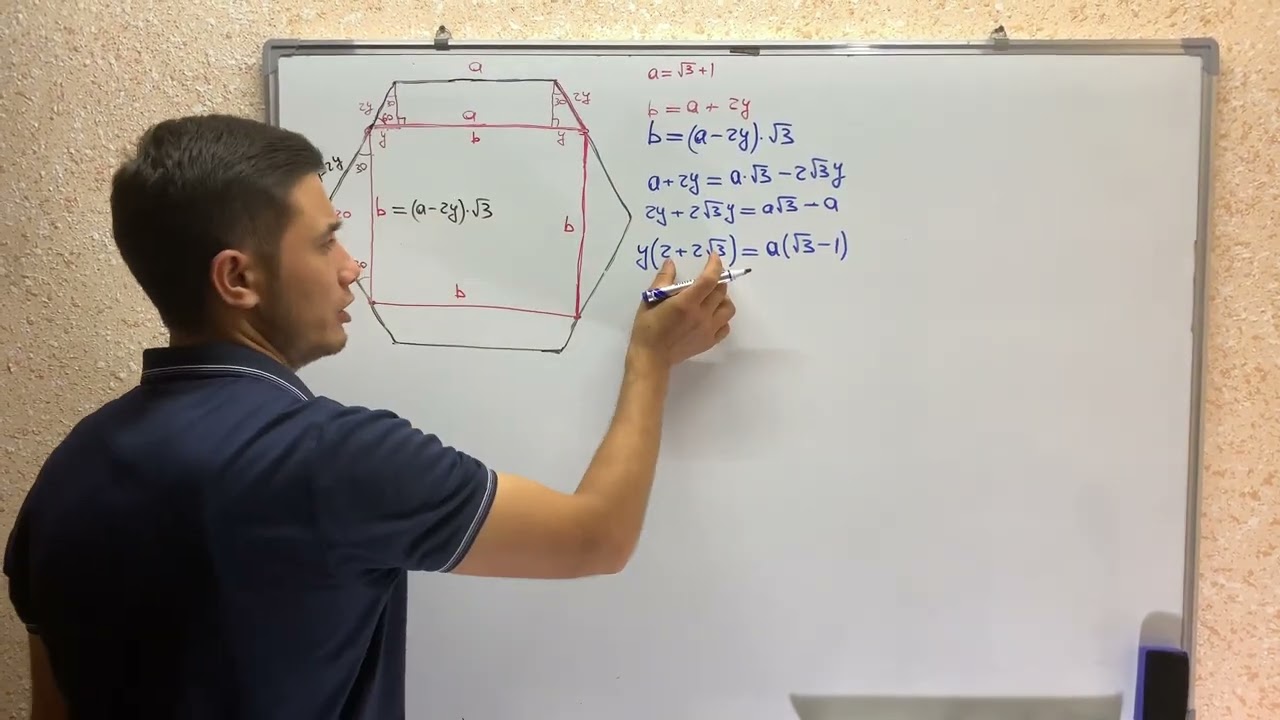 a
2y 30 30 2y
60 a
y b y
2y 30
b = (a-2y)·√3 b
b
a = √3 + 1
b = a + 2y
b = (a-2y)·√3
a + 2y = a·√3 - 2√3y
2y + 2√3y = a√3 - a
y(2 + 2√3) = a(√3 - 1)